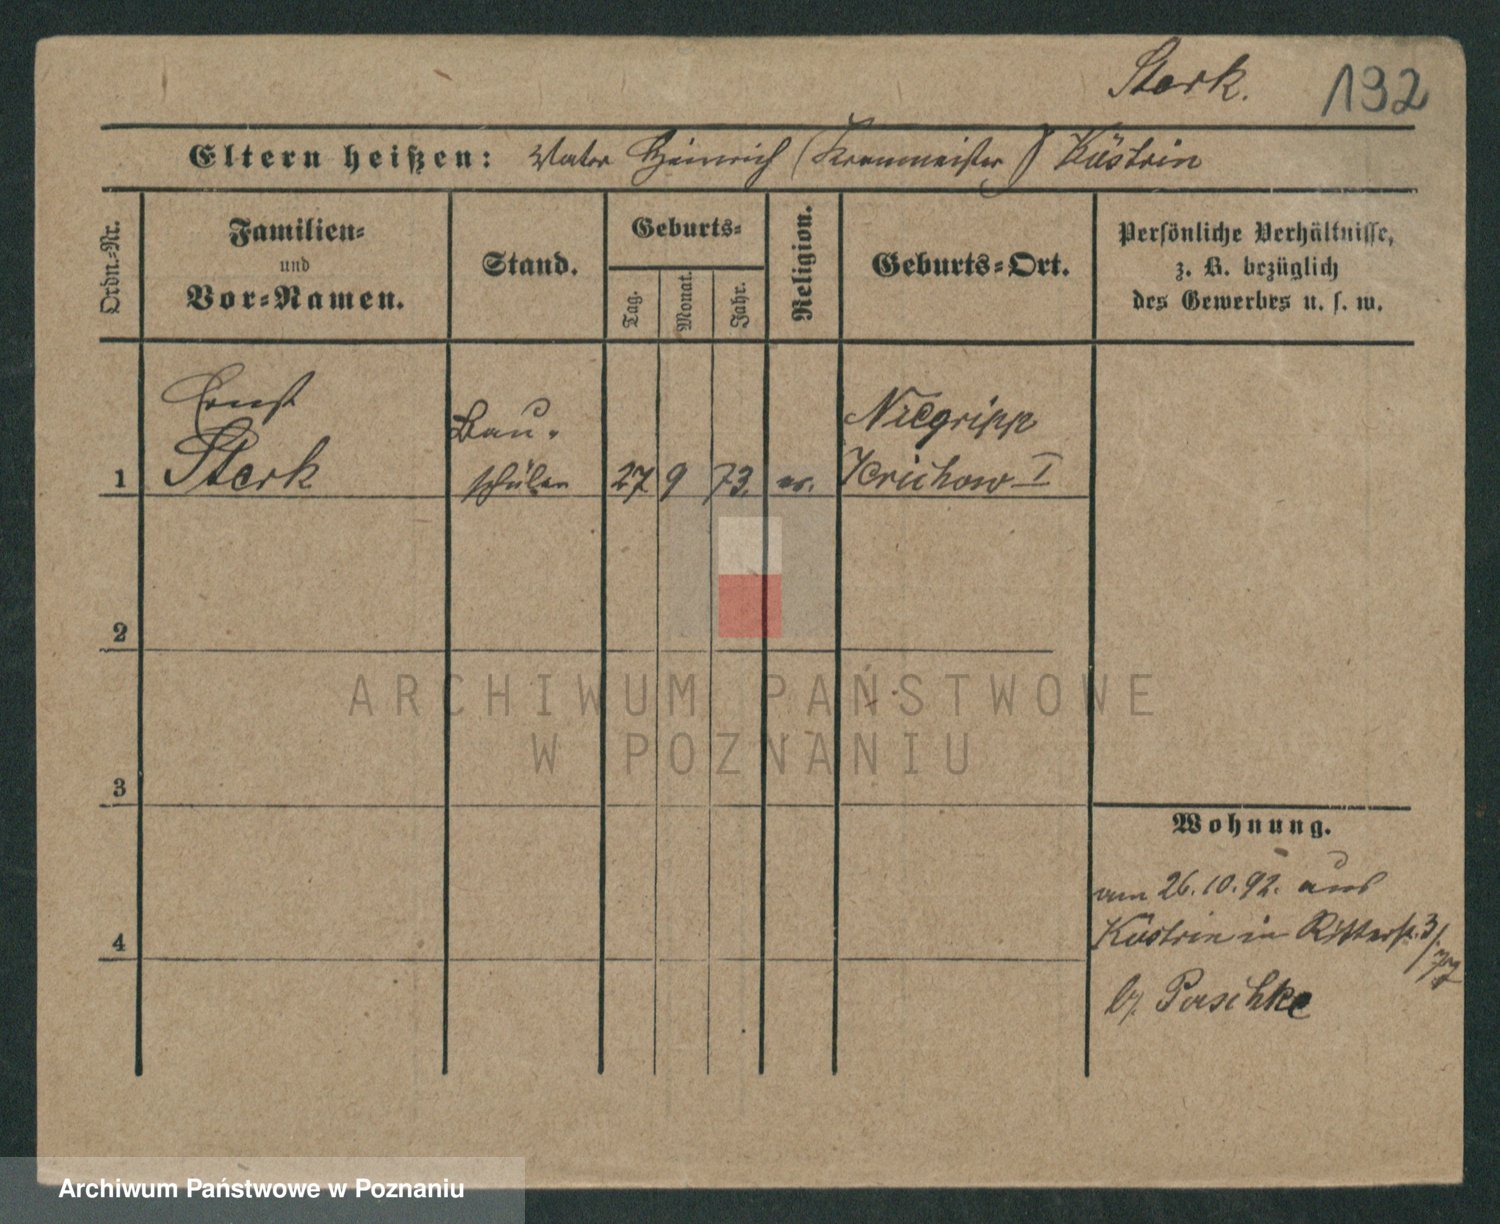 Sterk. 192
Eltern heißen: Vater Heinrich (Kronmeister) Küstrin
Ordn.=Nr.
Familien=
und
Vor=Namen.
Stand.
Geburts=
Tag.
Monat.
Jahr.
Religion.
Geburts=Ort.
Persönliche Verhältnisse,
z. B. bezüglich
des Gewerbes u. s. w.
Ernst
Sterk
Bau-
schüler
1
27 9 73. ev.
Niegripp
Jerichow I
2
3
4
Wohnung.
am 26.10.92. aus
Küstrin in Ritterst. 3/
b/ Paschke
ARCHIWUM PAŃSTWOWE
W POZNANIU
Archiwum Państwowe w Poznaniu